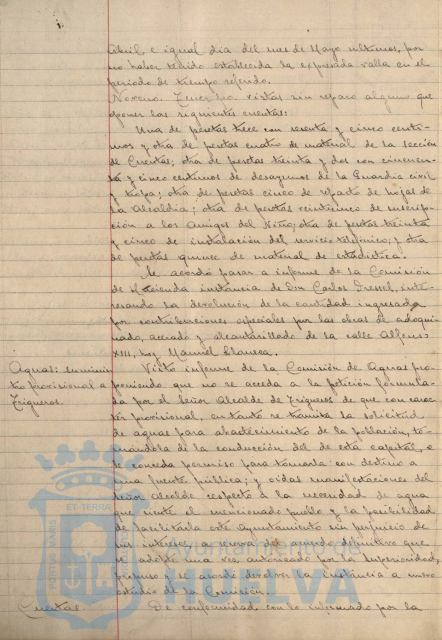 Abril e igual día del mes de Mayo ultimos, por
no haber tenido establecida la expresada valla en el
periodo de tiempo referido.
Noveno. Tener por vistas sin reparo alguno que
oponer las siguientes cuentas:
Una de pesetas trece con sesenta y cinco centi-
mos y otra de pesetas cuatro de material de la sección
de Cuentas; otra de pesetas treinta y dos con cincuen-
ta y cinco centimos de desayunos de la Guardia civil
y tropa; otra de pesetas cinco de reparto de hojas de
la Alcaldia; otra de pesetas veinticinco de suscrip-
ción a los Amigos del Niño; otra de pesetas treinta
y cinco de instalación del servicio telefonico; y otra
de pesetas quince de material de estadistica.
Se acordó pasar a informe de la Comisión
de Hacienda instancia de Don Carlos Dressel, inte-
resando la devolución de la cantidad ingresada
por contribuciones especiales por las obras de adoqui-
nado, acerado y alcantarillado de la calle Alfonso
XIII, hoy Manuel
Aguas: suministro Visto informe de la Comisión de Aguas pro-
tro provisional a poniendo que no se acceda a la petición formula-
Trigueros. da por el Señor Alcalde de Trigueros de que con carac-
ter provisional, en tanto se tramita la solicitud
de aguas para abastecimiento de la población, to-
mandola de la conducción del de esta capital, se
le conceda permiso para tomarla con destino a
una fuente pública; y oidas manifestaciones del
Señor alcalde respecto a la necesidad de agua
que siente el mencionado pueblo y la posibilidad
de facilitarla este Ayuntamiento sin perjuicio de
sus intereses, a reserva del acuerdo definitivo que
se adopte una vez autorizado por la Superioridad,
propuso y se acordó devolver la instancia a nuevo
estudio de la Comisión.
Cuentas. De conformidad con lo informado por la
PORTUS MARIS ET TERRAE
Ayuntamiento de
HUELVA